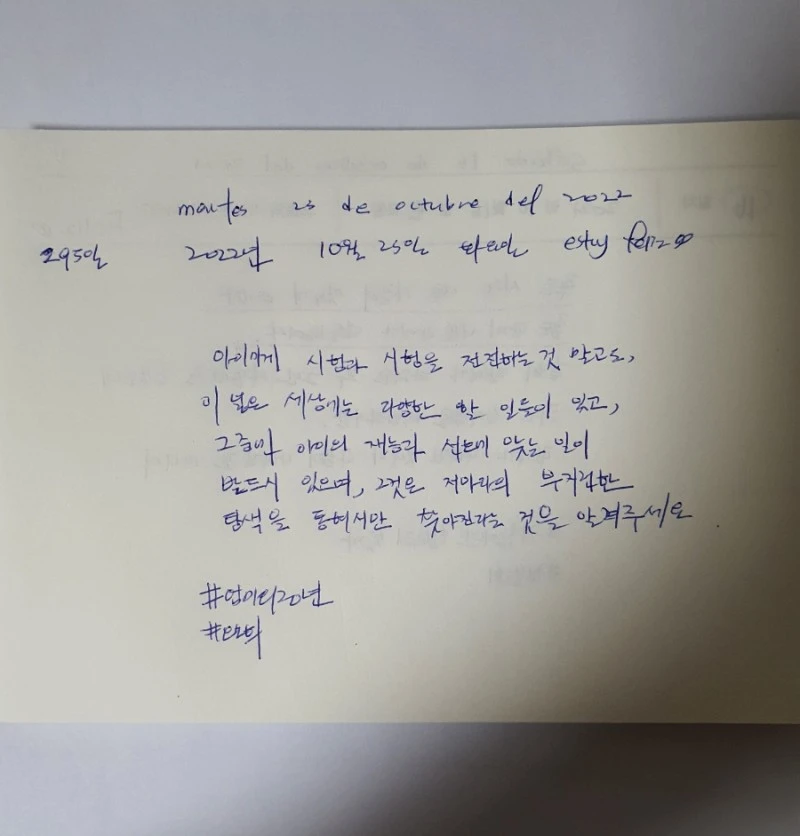 martes 25 de octubre del 2022
295일 2022년 10월 25일 화요일 estoy feliz
아이에게 시험과 시험을 전전하는 것 말고도,
이 넓은 세상에는 다양한 할 일들이 있고,
그중에 아이의 재능과 맞는 일이
반드시 있으며, 그것은 저마다의
탐색을 통해서만 찾아진다는 것을 알려주세요
#엄마의20년